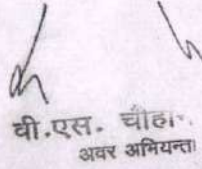 वी.एस. चौहा
अवर अभियन्ता